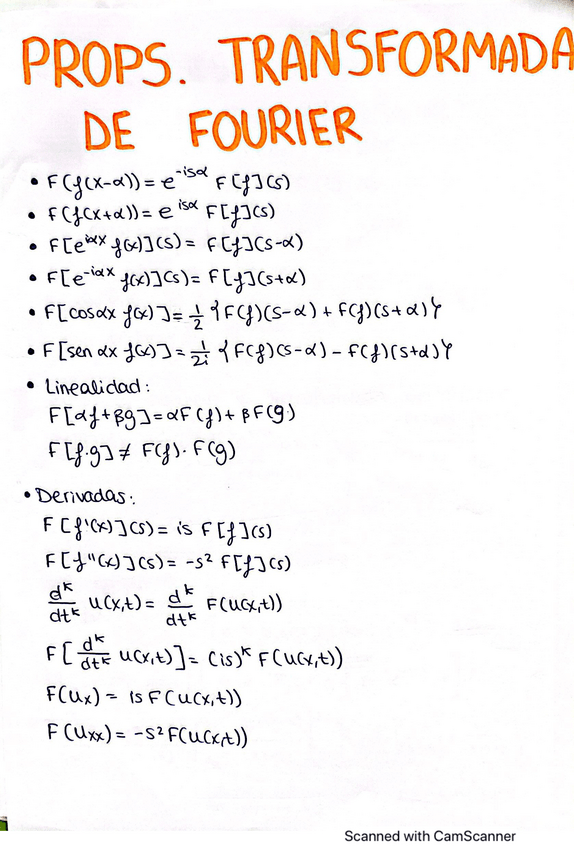 PROPS. TRANSFORMADA
DE FOURIER
• F(f(x-α)) = e^{-isα} F[f](s)
• F(f(x+α)) = e^{isα} F[f](s)
• F[e^{iαx} f(x)](s) = F[f](s-α)
• F[e^{-iαx} f(x)](s) = F[f](s+α)
• F[cosαx f(x)] = 1/2 {F(f)(s-α) + F(f)(s+α)}
• F[sen αx f(x)] = 1/2i {F(f)(s-α) - F(f)(s+α)}
• Linealidad:
F[αf+βg] = αF(f) + βF(g)
F[f·g] ≠ F(f) · F(g)
• Derivadas:
F[f'(x)](s) = is F[f](s)
F[f''(x)](s) = -s² F[f](s)
d^k/dt^k u(x,t) = d^k/dt^k F(u(x,t))
F[d^k/dt^k u(x,t)] = (is)^k F(u(x,t))
F(ux) = is F(u(x,t))
F(uxx) = -s² F(u(x,t))
Scanned with CamScanner